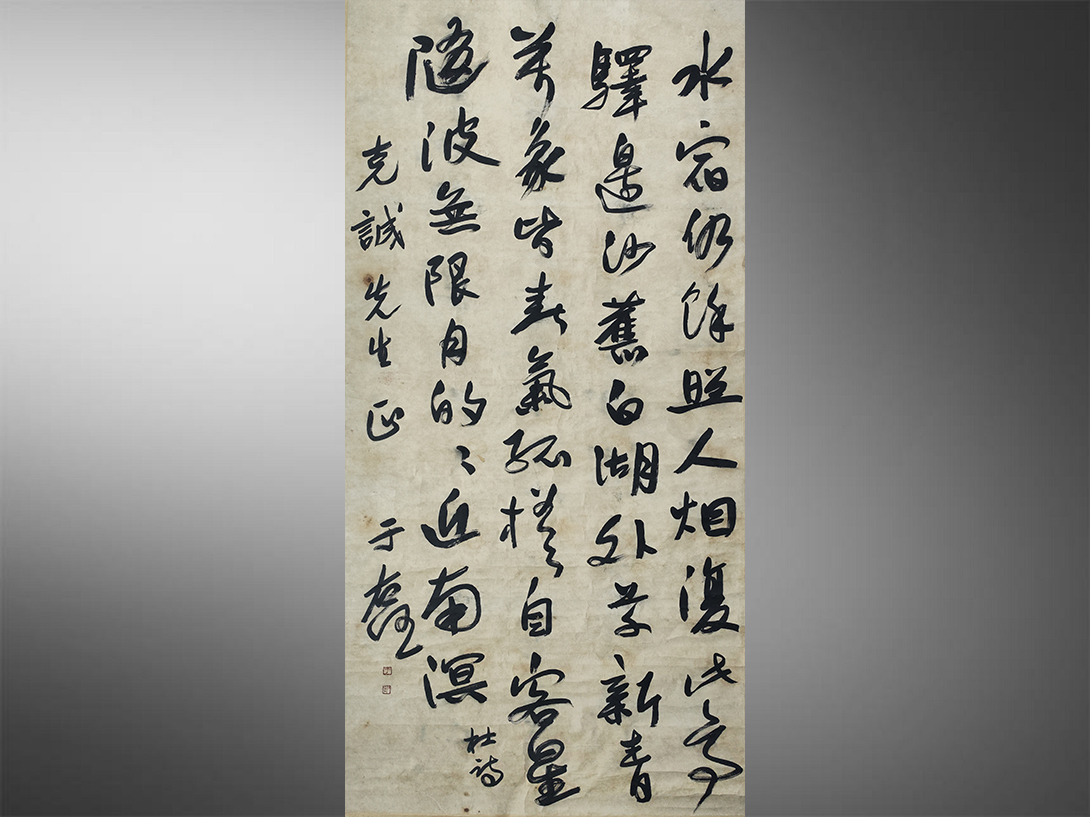 水宿仍餘照人烟復此亭
驛邊沙舊白湖外草新青
萬象皆春氣孤槎自客星
隨波無限月的〻近南溟
杜詩
克誠先生正
于右任